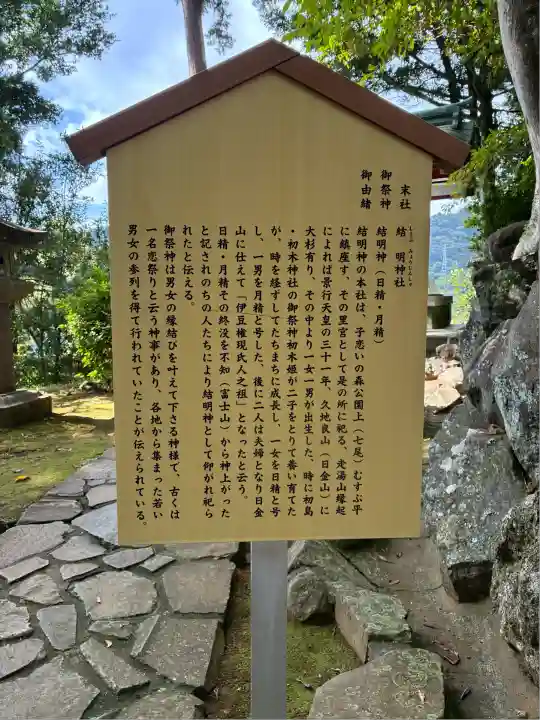 末社　結　明神社
むすぶ　みょうじんしゃ
御祭神　結明神（日精・月精）
御由緒　結明神の本社は、子恋いの森公園上（七尾）むすぶ平
に鎮座す、その里宮として是の所に祀る、走湯山縁起
によれば景行天皇の三十一年、久地良山（日金山）に
大杉有り、その中より一女一男が出生した、時に初島
・初木神社の御祭神初木姫が二子をとりて養い育てた
が、時を経ずしてたちまちに成長し、一女を日精と号
し、一男を月精と号した、後に二人は夫婦となり日金
山に仕えて「伊豆権現氏人之祖」となったと云う。
日精・月精その終没を不知（富士山）から神上がった
と記されのちの人たちにより結明神として仰がれ祀ら
れたと伝える。
御祭神は男女の縁結びを叶えて下さる神様で、古くは
一名恋祭りと云う神事があり、各地から集まった若い
男女の参列を得て行われていたことが伝えられている。